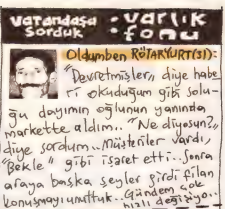 vatandaşa
sorduk
: varlık
: fonu
Oldumben RÖTARYURT(51):
"Devretmişler" diye habe
ri okuduğum gibi solu-
ğu dayımın oğlunun yanında
markette aldım.. "Ne diyosun?"
diye sordum.. Müşteriler vardı,
"Bekle" gibi işaret etti.. Sonra
araya başka şeyler girdi filan
konuşmayı unuttuk.. Gündem çok
hızlı değişiyo..